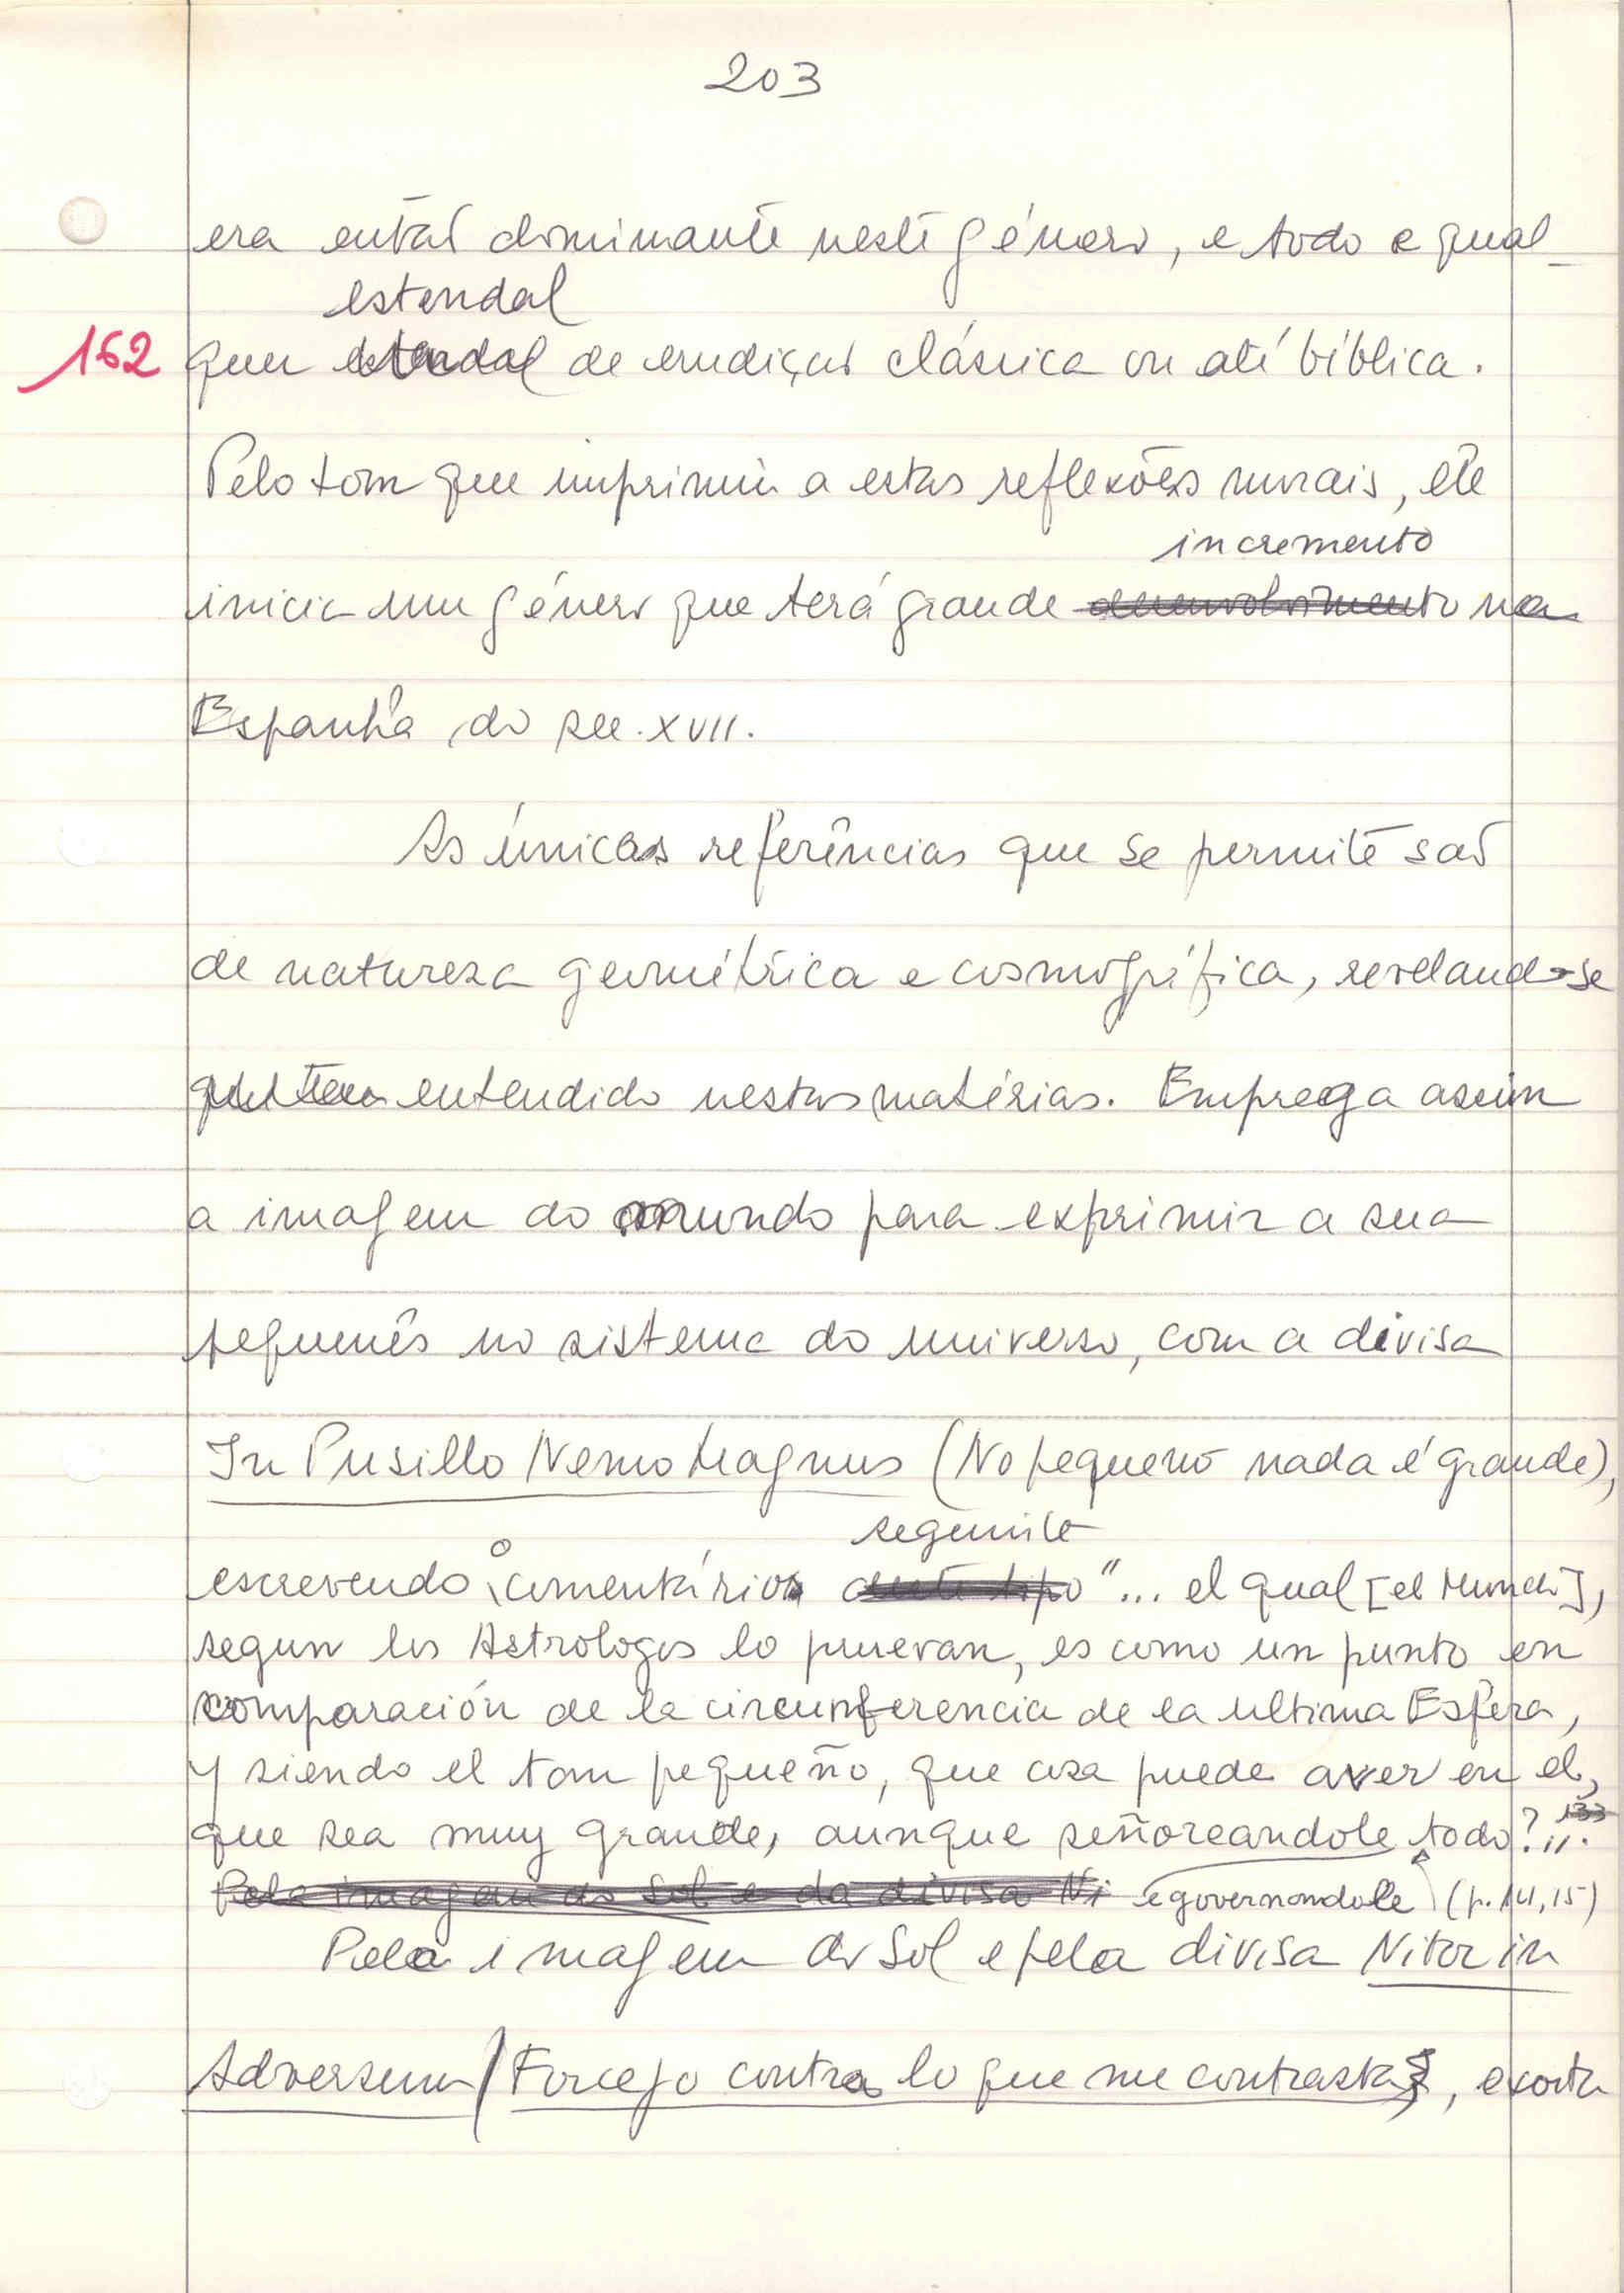 203
era então dominante neste género, e todo e qual-
estendal
162 quer estendal de erudição clássica ou até bíblica.
Pelo tom que imprimiu a estas reflexões morais, ele
incremento
inicia um género que terá grande desenvolvimento na
Espanha do sec. XVII.
As únicas referências que se permite são
de natureza geométrica e cosmográfica, revelando-se
entendido nestas matérias. Emprega assim
a imagem do mundo para exprimir a sua
pequenês no sistema do universo, com a divisa
In Pusillo Nemo Magnus (No pequeno nada é grande),
seguinte
escrevendo o comentário "... el qual [el Mundo],
segun los Astrologos lo pruevan, es como un punto en
comparación de la circunferencia de la ultima Esfera,
y siendo el tam pequeño, que cosa puede aver en el,
que sea muy grande, aunque señoreandole todo?". 133
Pela imagem do Sol e da divisa Ni e governandole (p. 14, 15)
Pela imagem do Sol e pela divisa Nitor in
Adversum (Forcejo contra lo que me contrasta), exorta